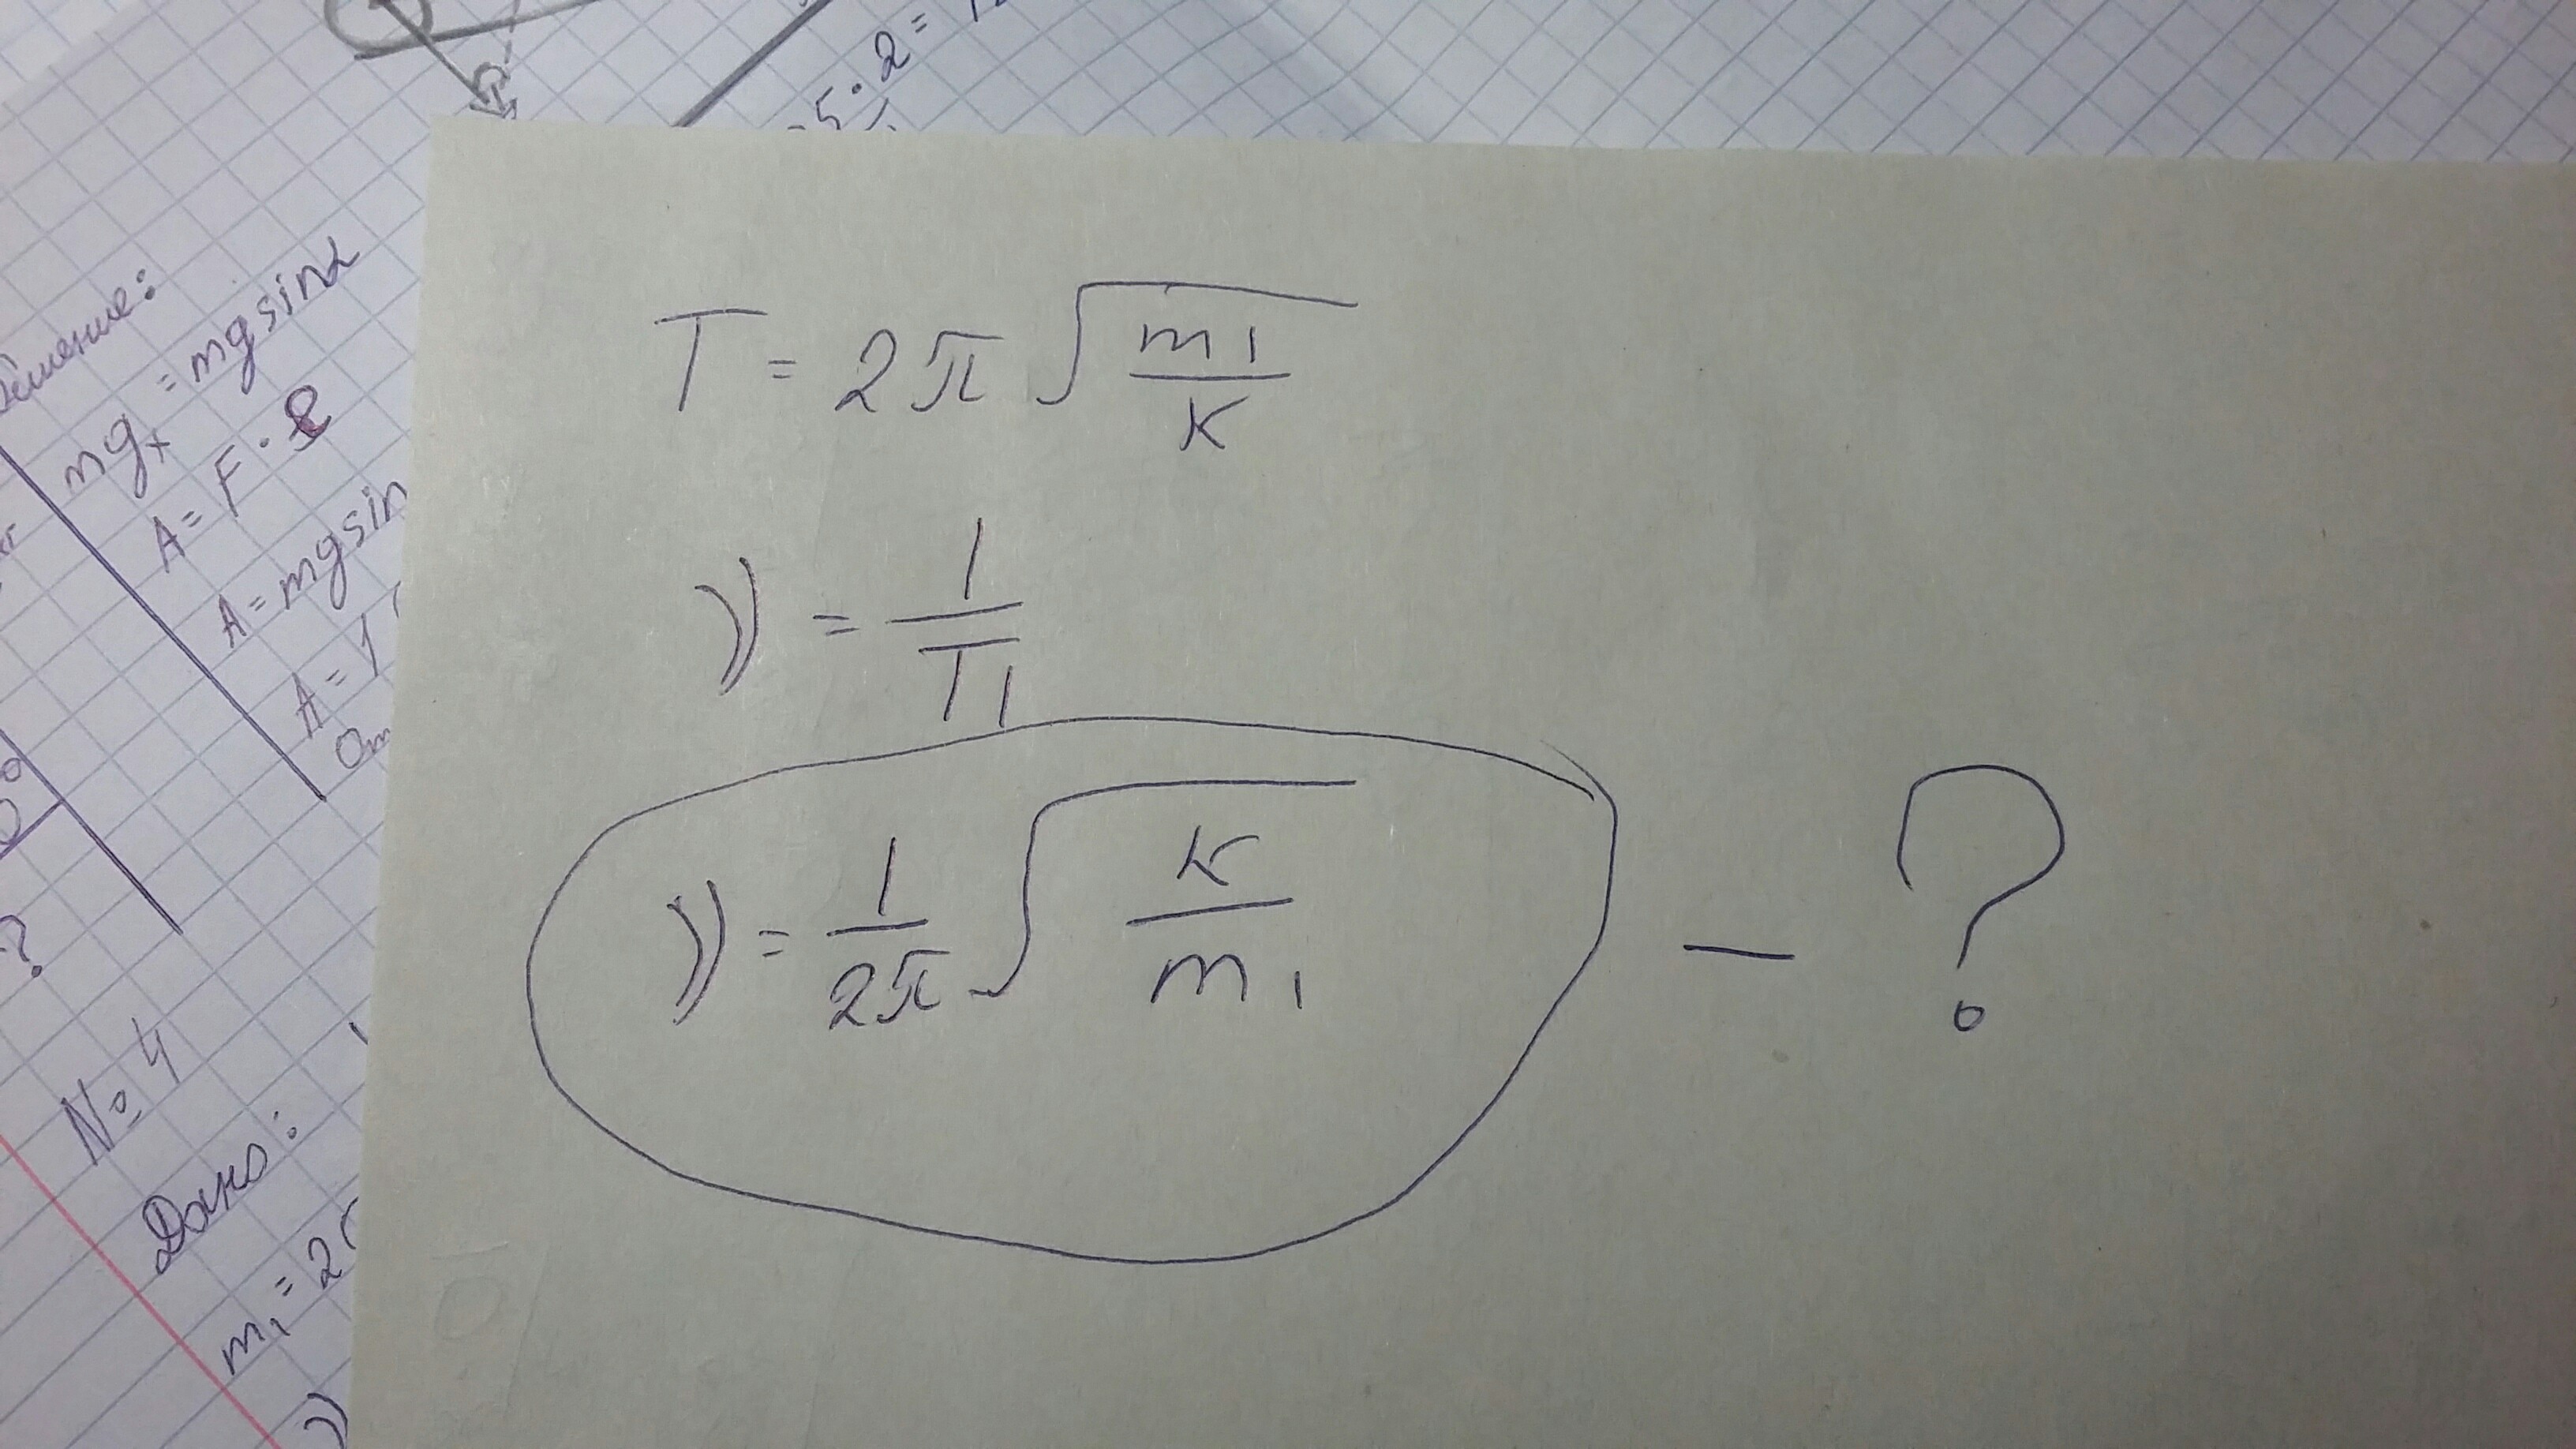 5·2=
Решение:
mgₓ = mg sinα
A = F · ℓ
A = mg sin
A = 1
От
?
№ 4
Дано:
m₁ = 2
ν
T = 2π √(m₁/K)
ν = 1/T₁
ν = 1/2π √(K/m₁) — ?